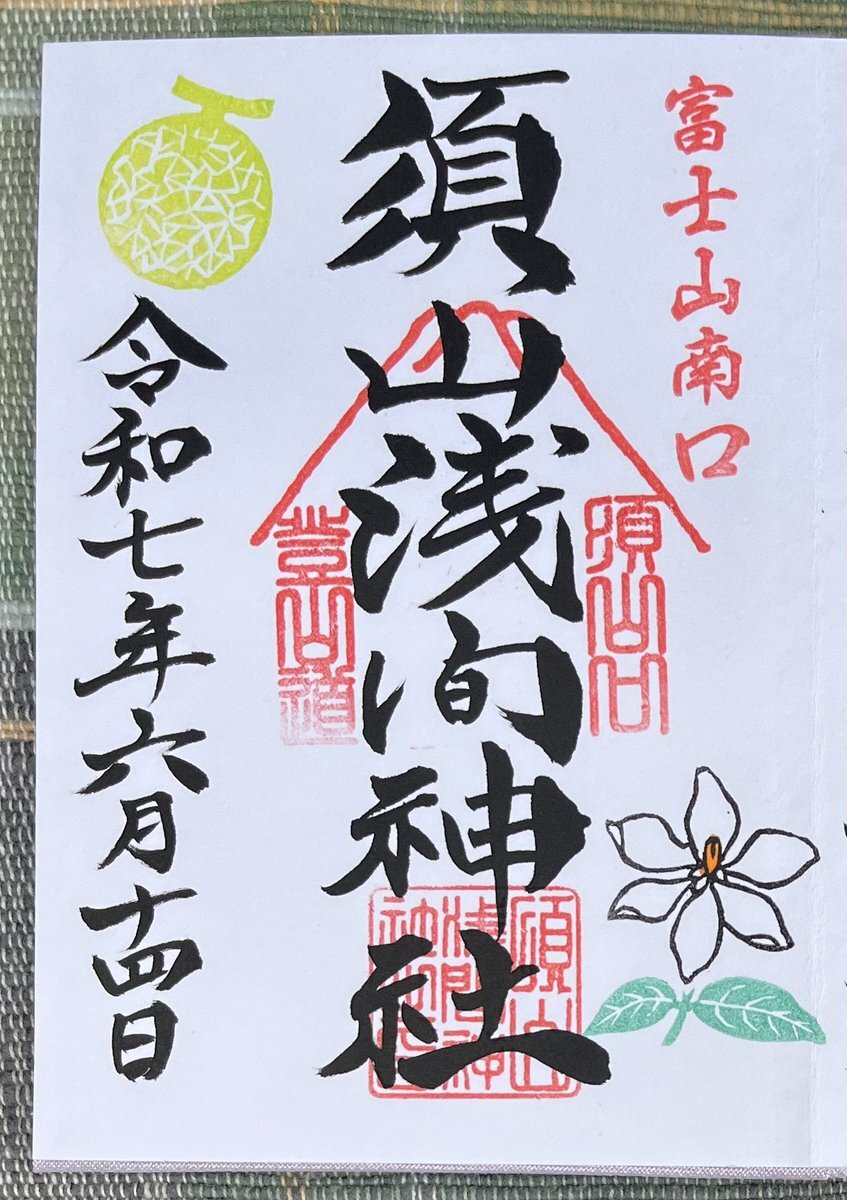 富士山南口
須山浅间神社
須山口
登山道
須山
浅间神
社
令和七年六月十四日